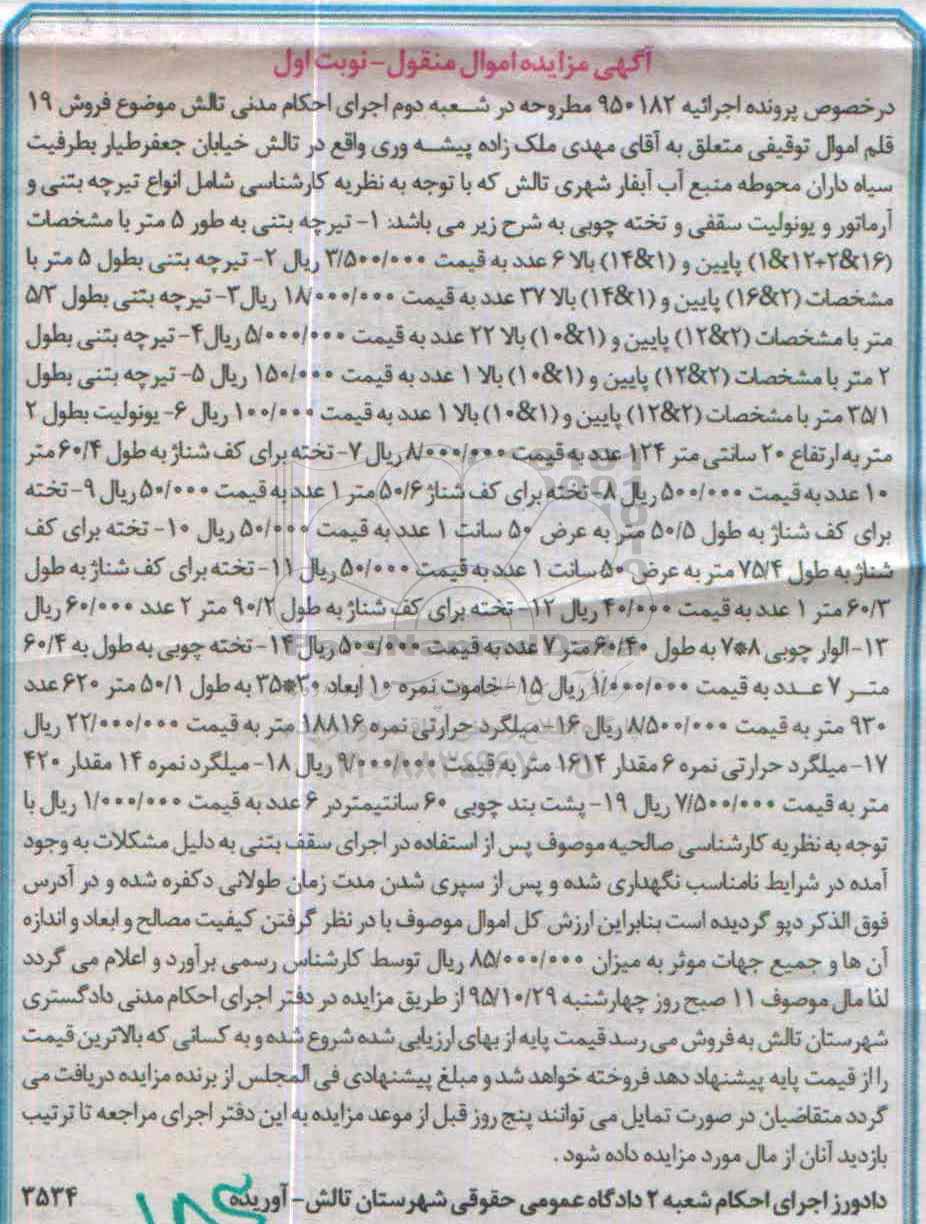 آگهی مزایده اموال منقول - نوبت اول
درخصوص پرونده اجرائیه ۹۵۰۱۸۲ مطروحه در شعبه دوم اجرای احکام مدنی تالش موضوع فروش ۱۹
قلم اموال توقیفی متعلق به آقای مهدی ملک زاده پیشه وری واقع در تالش خیابان جعفرطیار بطرفیت
سیاه داران محوطه منبع آب آبفار شهری تالش که با توجه به نظریه کارشناسی شامل انواع تیرچه بتنی و
آرماتور و یونولیت سقفی و تخته چوبی به شرح زیر می باشد: ۱- تیرچه بتنی به طور ۵ متر با مشخصات
(۱۶&۲+۱۲&۱) پایین و (۱&۱۴) بالا ۶ عدد به قیمت ۳/۵۰۰/۰۰۰ ریال ۲- تیرچه بتنی بطول ۵ متر با
مشخصات (۲&۱۶) پایین و (۱&۱۴) بالا ۳۷ عدد به قیمت ۱۸/۰۰۰/۰۰۰ ریال ۳- تیرچه بتنی بطول ۵/۳
متر با مشخصات (۲&۱۲) پایین و (۱&۱۰) بالا ۲۲ عدد به قیمت ۵/۰۰۰/۰۰۰ ریال ۴- تیرچه بتنی بطول
۲ متر با مشخصات (۲&۱۲) پایین و (۱&۱۰) بالا ۱ عدد به قیمت ۱۵۰/۰۰۰ ریال ۵- تیرچه بتنی بطول
۳۵/۱ متر با مشخصات (۲&۱۲) پایین و (۱&۱۰) بالا ۱ عدد به قیمت ۱۰۰/۰۰۰ ریال ۶- یونولیت بطول ۲
متر به ارتفاع ۲۰ سانتی متر ۱۲۴ عدد به قیمت ۸/۰۰۰/۰۰۰ ریال ۷- تخته برای کف شناژ به طول ۶۰/۴ متر
۱۰ عدد به قیمت ۵۰۰/۰۰۰ ریال ۸- تخته برای کف شناژ ۵۰/۶ متر ۱ عدد به قیمت ۵۰/۰۰۰ ریال ۹- تخته
برای کف شناژ به طول ۵۰/۵ متر به عرض ۵۰ سانت ۱ عدد به قیمت ۵۰/۰۰۰ ریال ۱۰- تخته برای کف
شناژ به طول ۷۵/۴ متر به عرض ۵۰ سانت ۱ عدد به قیمت ۵۰/۰۰۰ ریال ۱۱- تخته برای کف شناژ به طول
۶۰/۳ متر ۱ عدد به قیمت ۴۰/۰۰۰ ریال ۱۲- تخته برای کف شناژ به طول ۹۰/۲ متر ۲ عدد ۶۰/۰۰۰ ریال
۱۳- الوار چوبی ۸*۷ به طول ۶۰/۴۰ متر ۷ عدد به قیمت ۵۰۰/۰۰۰ ریال ۱۴- تخته چوبی به طول به ۶۰/۴
متر ۷ عدد به قیمت ۱/۰۰۰/۰۰۰ ریال ۱۵- خاموت نمره ۱۰ ابعاد ۳۰*۳۵ به طول ۵۰/۱ متر ۶۲۰ عدد
۹۳۰ متر به قیمت ۸/۵۰۰/۰۰۰ ریال ۱۶- میلگرد حرارتی نمره ۱۸۸۱۶ متر به قیمت ۲۲/۰۰۰/۰۰۰ ریال
۱۷- میلگرد حرارتی نمره ۶ مقدار ۱۶۱۴ متر به قیمت ۹/۰۰۰/۰۰۰ ریال ۱۸- میلگرد نمره ۱۴ مقدار ۴۲۰
متر به قیمت ۷/۵۰۰/۰۰۰ ریال ۱۹- پشت بند چوبی ۶۰ سانتیمتر در ۶ عدد به قیمت ۱/۰۰۰/۰۰۰ ریال با
توجه به نظریه کارشناسی صالحیه موصوف پس از استفاده در اجرای سقف بتنی به دلیل مشکلات به وجود
آمده در شرایط نامناسب نگهداری شده و پس از سپری شدن مدت زمان طولانی دکفره شده و در آدرس
فوق الذکر دپو گردیده است بنابراین ارزش کل اموال موصوف با در نظر گرفتن کیفیت مصالح و ابعاد و اندازه
آن ها و جمیع جهات موثر به میزان ۸۵/۰۰۰/۰۰۰ ریال توسط کارشناس رسمی برآورد و اعلام می گردد
لذا مال موصوف ۱۱ صبح روز چهارشنبه ۹۵/۱۰/۲۹ از طریق مزایده در دفتر اجرای احکام مدنی دادگستری
شهرستان تالش به فروش می رسد قیمت پایه از بهای ارزیابی شده شروع شده و به کسانی که بالاترین قیمت
را از قیمت پایه پیشنهاد دهد فروخته خواهد شد و مبلغ پیشنهادی فی المجلس از برنده مزایده دریافت می
گردد متقاضیان در صورت تمایل می توانند پنج روز قبل از موعد مزایده به این دفتر اجرای مراجعه تا ترتیب
بازدید آنان از مال مورد مزایده داده شود .
دادورز اجرای احکام شعبه ۲ دادگاه عمومی حقوقی شهرستان تالش - آوریده ۳۵۳۴